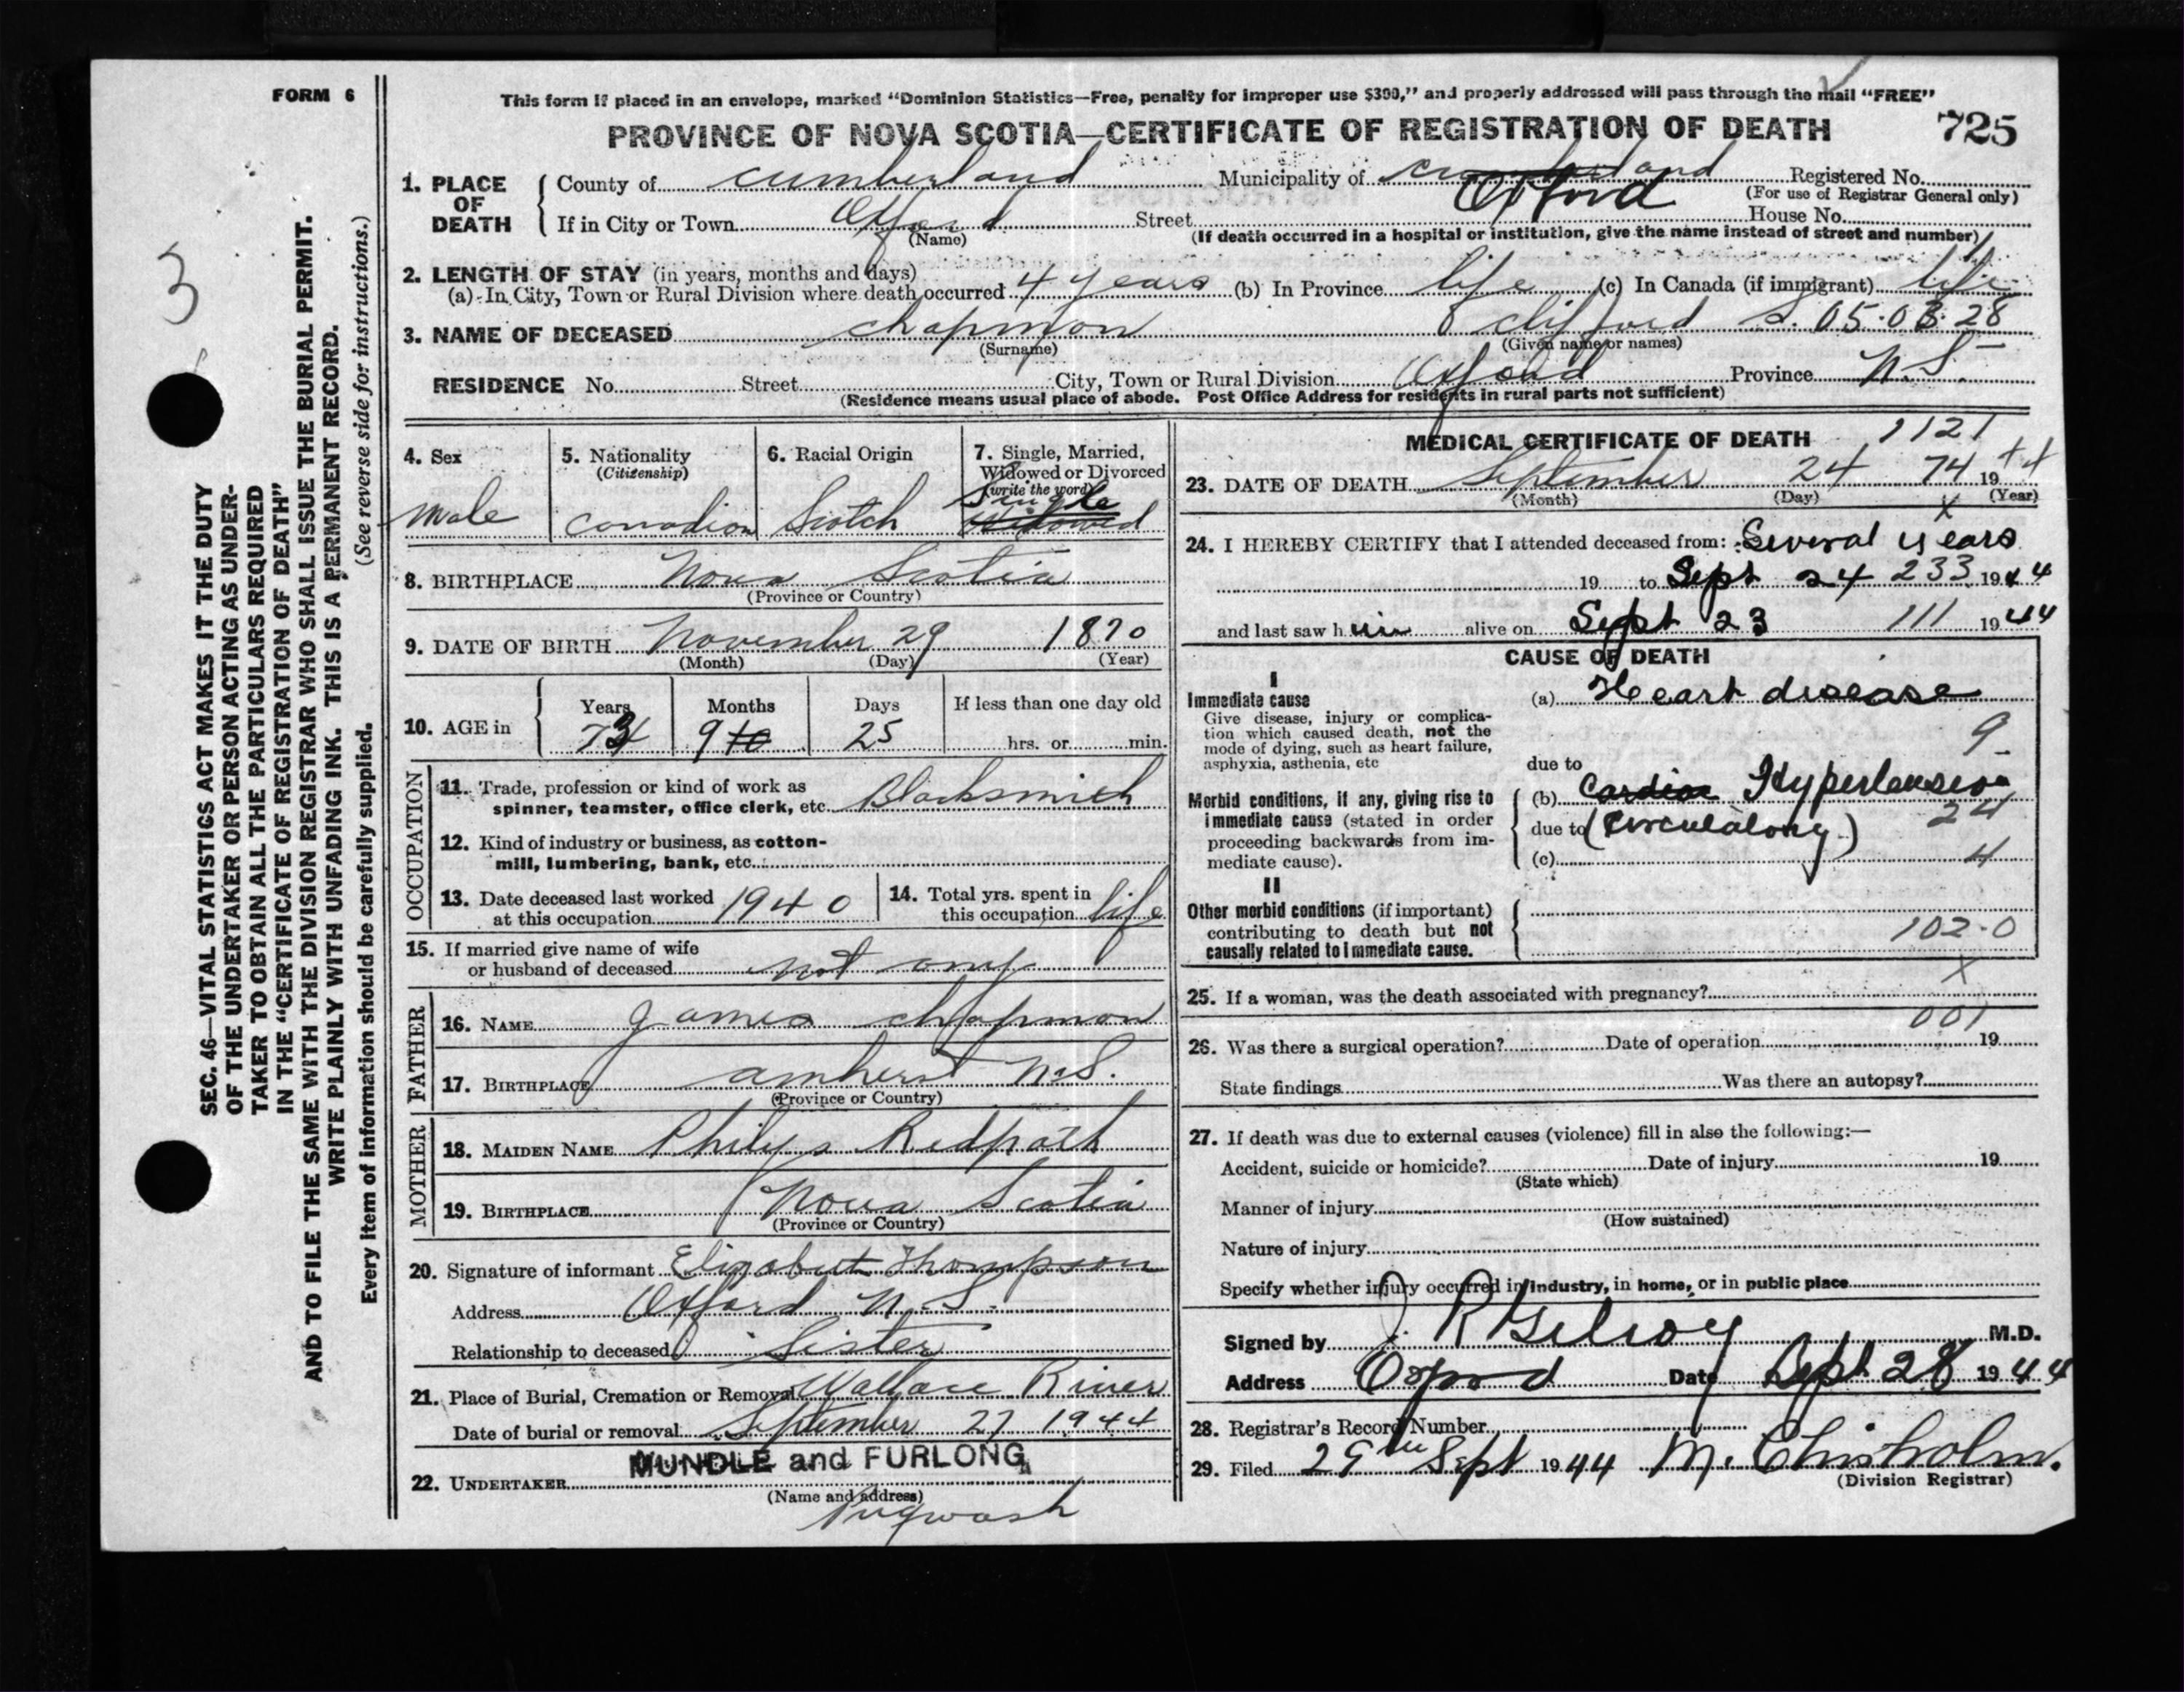 FORM 6
This form if placed in an envelope, marked "Dominion Statistics—Free, penalty for improper use $300," and properly addressed will pass through the mail "FREE"
PROVINCE OF NOVA SCOTIA—CERTIFICATE OF REGISTRATION OF DEATH 725
3
SEC. 46—VITAL STATISTICS ACT MAKES IT THE DUTY
OF THE UNDERTAKER OR PERSON ACTING AS UNDER-
TAKER TO OBTAIN ALL THE PARTICULARS REQUIRED
IN THE "CERTIFICATE OF REGISTRATION OF DEATH"
AND TO FILE THE SAME WITH THE DIVISION REGISTRAR WHO SHALL ISSUE THE BURIAL PERMIT.
WRITE PLAINLY WITH UNFADING INK. THIS IS A PERMANENT RECORD.
Every item of information should be carefully supplied. (See reverse side for instructions.)
1. PLACE OF DEATH County of Cumberland Municipality of Cumberland Oxford Registered No.
(For use of Registrar General only)
If in City or Town Oxford Street House No.
(Name) (If death occurred in a hospital or institution, give the name instead of street and number)
2. LENGTH OF STAY (in years, months and days)
(a) In City, Town or Rural Division where death occurred 4 years (b) In Province life (c) In Canada (if immigrant) life
3. NAME OF DECEASED Chapman Clifford S. 05.03.28
(Surname) (Given name or names)
RESIDENCE No. Street City, Town or Rural Division Oxford Province N.S.
(Residence means usual place of abode. Post Office Address for residents in rural parts not sufficient)
4. Sex 5. Nationality (Citizenship) 6. Racial Origin 7. Single, Married, Widowed or Divorced (write the word)
Male Canadian Scotch Single Widowed
8. BIRTHPLACE Nova Scotia
(Province or Country)
9. DATE OF BIRTH November 29 1870
(Month) (Day) (Year)
10. AGE in Years Months Days If less than one day old
73 9 10 25 hrs. or min.
OCCUPATION
11. Trade, profession or kind of work as
spinner, teamster, office clerk, etc. Blacksmith
12. Kind of industry or business, as cotton-
mill, lumbering, bank, etc.
13. Date deceased last worked at this occupation 1940 14. Total yrs. spent in this occupation life
15. If married give name of wife
or husband of deceased not any
FATHER
16. NAME James Chapman
17. BIRTHPLACE Amherst N.S.
(Province or Country)
MOTHER
18. MAIDEN NAME Philys Redpath
19. BIRTHPLACE Nova Scotia
(Province or Country)
20. Signature of informant Elizabeth Thompson
Address Oxford N.S.
Relationship to deceased Sister
21. Place of Burial, Cremation or Removal Wallace River
Date of burial or removal September 27 1944
MUNDLE and FURLONG
22. UNDERTAKER
(Name and address)
Pugwash
MEDICAL CERTIFICATE OF DEATH 1121
23. DATE OF DEATH September 24 74 1944
(Month) (Day) (Year)
X
24. I HEREBY CERTIFY that I attended deceased from: Several years
19 to Sept 24 233 1944
and last saw him alive on Sept 23 111 1944
CAUSE OF DEATH
I
Immediate cause (a) Heart disease
Give disease, injury or complica-
tion which caused death, not the
mode of dying, such as heart failure,
asphyxia, asthenia, etc
9
due to
Morbid conditions, if any, giving rise to
immediate cause (stated in order
proceeding backwards from im-
mediate cause).
(b) Cardiac Hypertension
due to (Circulatory) 24
(c) 4
II
Other morbid conditions (if important)
contributing to death but not
causally related to immediate cause.
102.0
X
25. If a woman, was the death associated with pregnancy?
001
26. Was there a surgical operation? Date of operation 19
State findings Was there an autopsy?
27. If death was due to external causes (violence) fill in also the following:—
Accident, suicide or homicide? Date of injury 19
(State which)
Manner of injury
(How sustained)
Nature of injury
Specify whether injury occurred in industry, in home, or in public place
Signed by J. R Gilroy M.D.
Address Oxford Date Sept 28 1944
28. Registrar's Record Number
29. Filed 29th Sept 1944 M. Chisholm.
(Division Registrar)